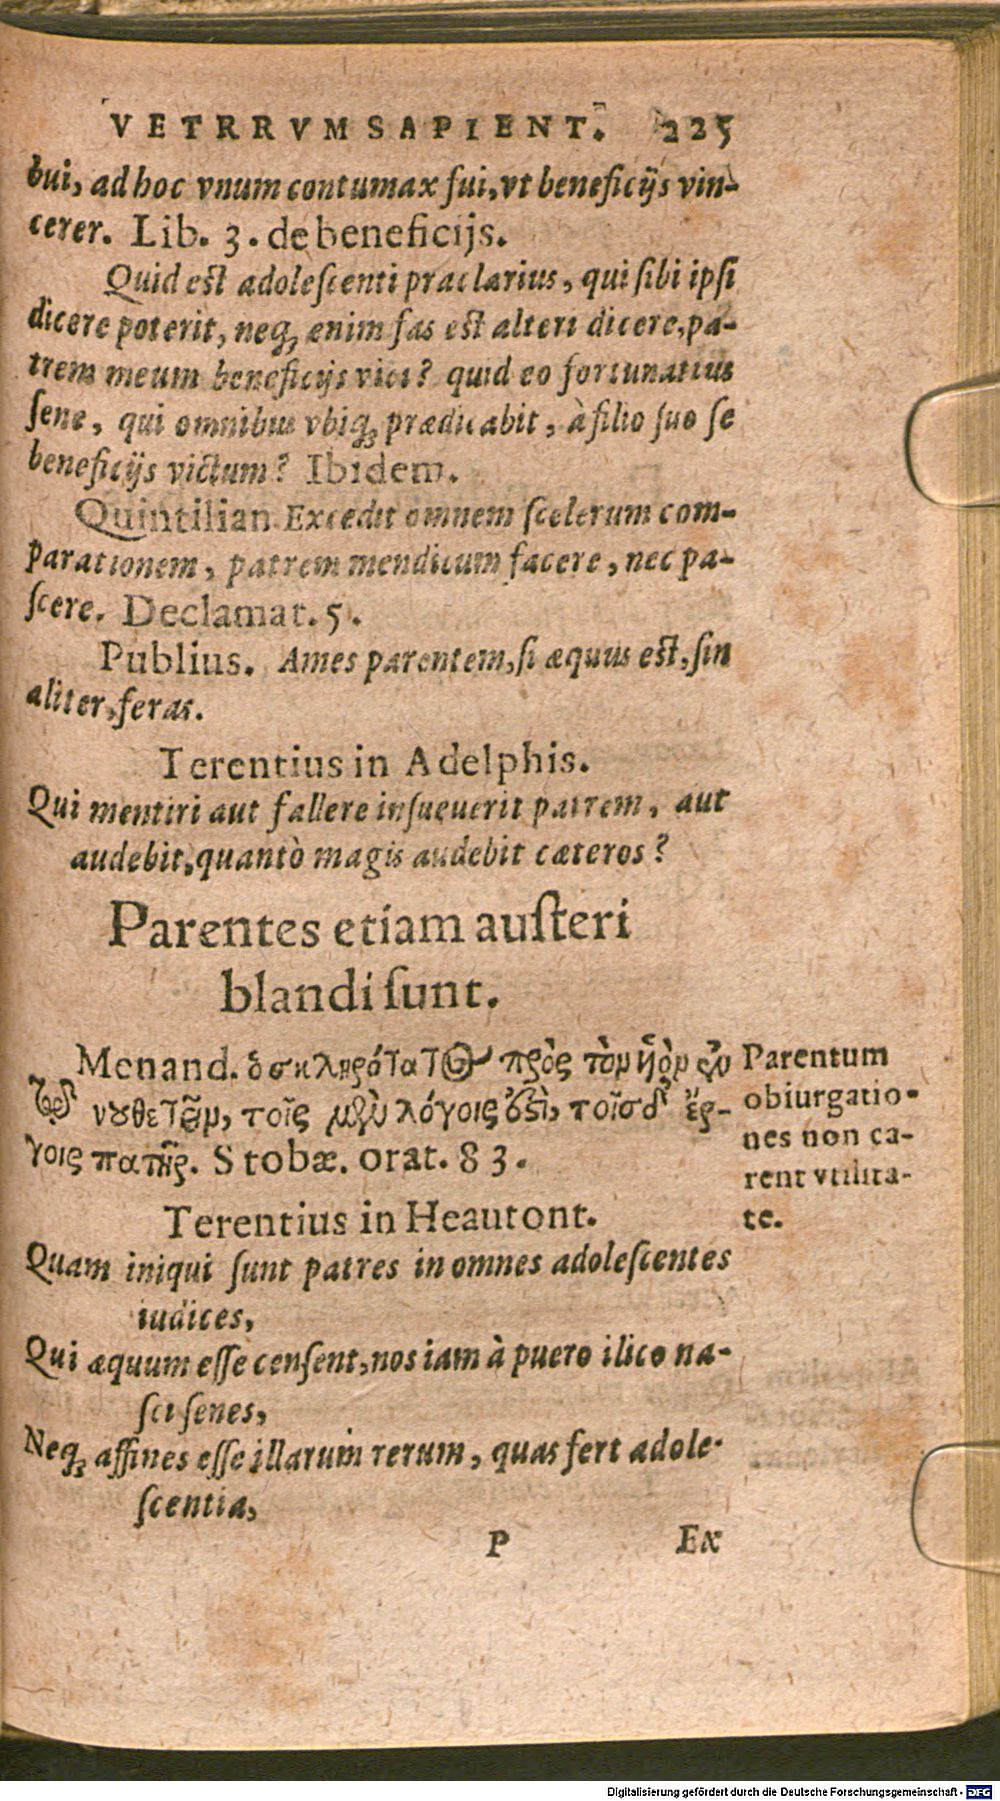 VETRRVM SAPIENT. 225
bui, ad hoc vnum contumax fui, vt beneficijs vin-
cerer. Lib. 3. de beneficijs.
Quid est adolescenti præclarius, qui sibi ipsi
dicere poterit, neq; enim fas est alteri dicere, pa-
trem meum beneficijs vici? quid eo fortunatius
sene, qui omnibus vbiq; prædicabit, à filio suo se
beneficijs victum? Ibidem.
Quintilian. Excedit omnem scelerum com-
parationem, patrem mendicum facere, nec pa-
scere. Declamat. 5.
Publius. Ames parentem, si æquus est, sin
aliter, feras.
Terentius in Adelphis.
Qui mentiri aut fallere insueuerit patrem, aut
audebit, quantò magis audebit cæteros?
Parentes etiam austeri
blandi sunt.
Menand. ὁ σκληρότατος πρὸς τὸν ἡὸν ἐν
τῷ νουθετεῖν, τοῖς μὲν λόγοις ὀξὺ, τοῖς δ' ἔρ-
γοις πατήρ. Stobæ. orat. 83.
Parentum
obiurgatio-
nes non ca-
rent vtilita-
te.
Terentius in Heautont.
Quam iniqui sunt patres in omnes adolescentes
iudices,
Qui æquum esse censent, nos iam à puero ilico na-
sci senes,
Neq; affines esse illarum rerum, quas fert adole-
scentia,
P Ex
Digitalisierung gefördert durch die Deutsche Forschungsgemeinschaft - DFG